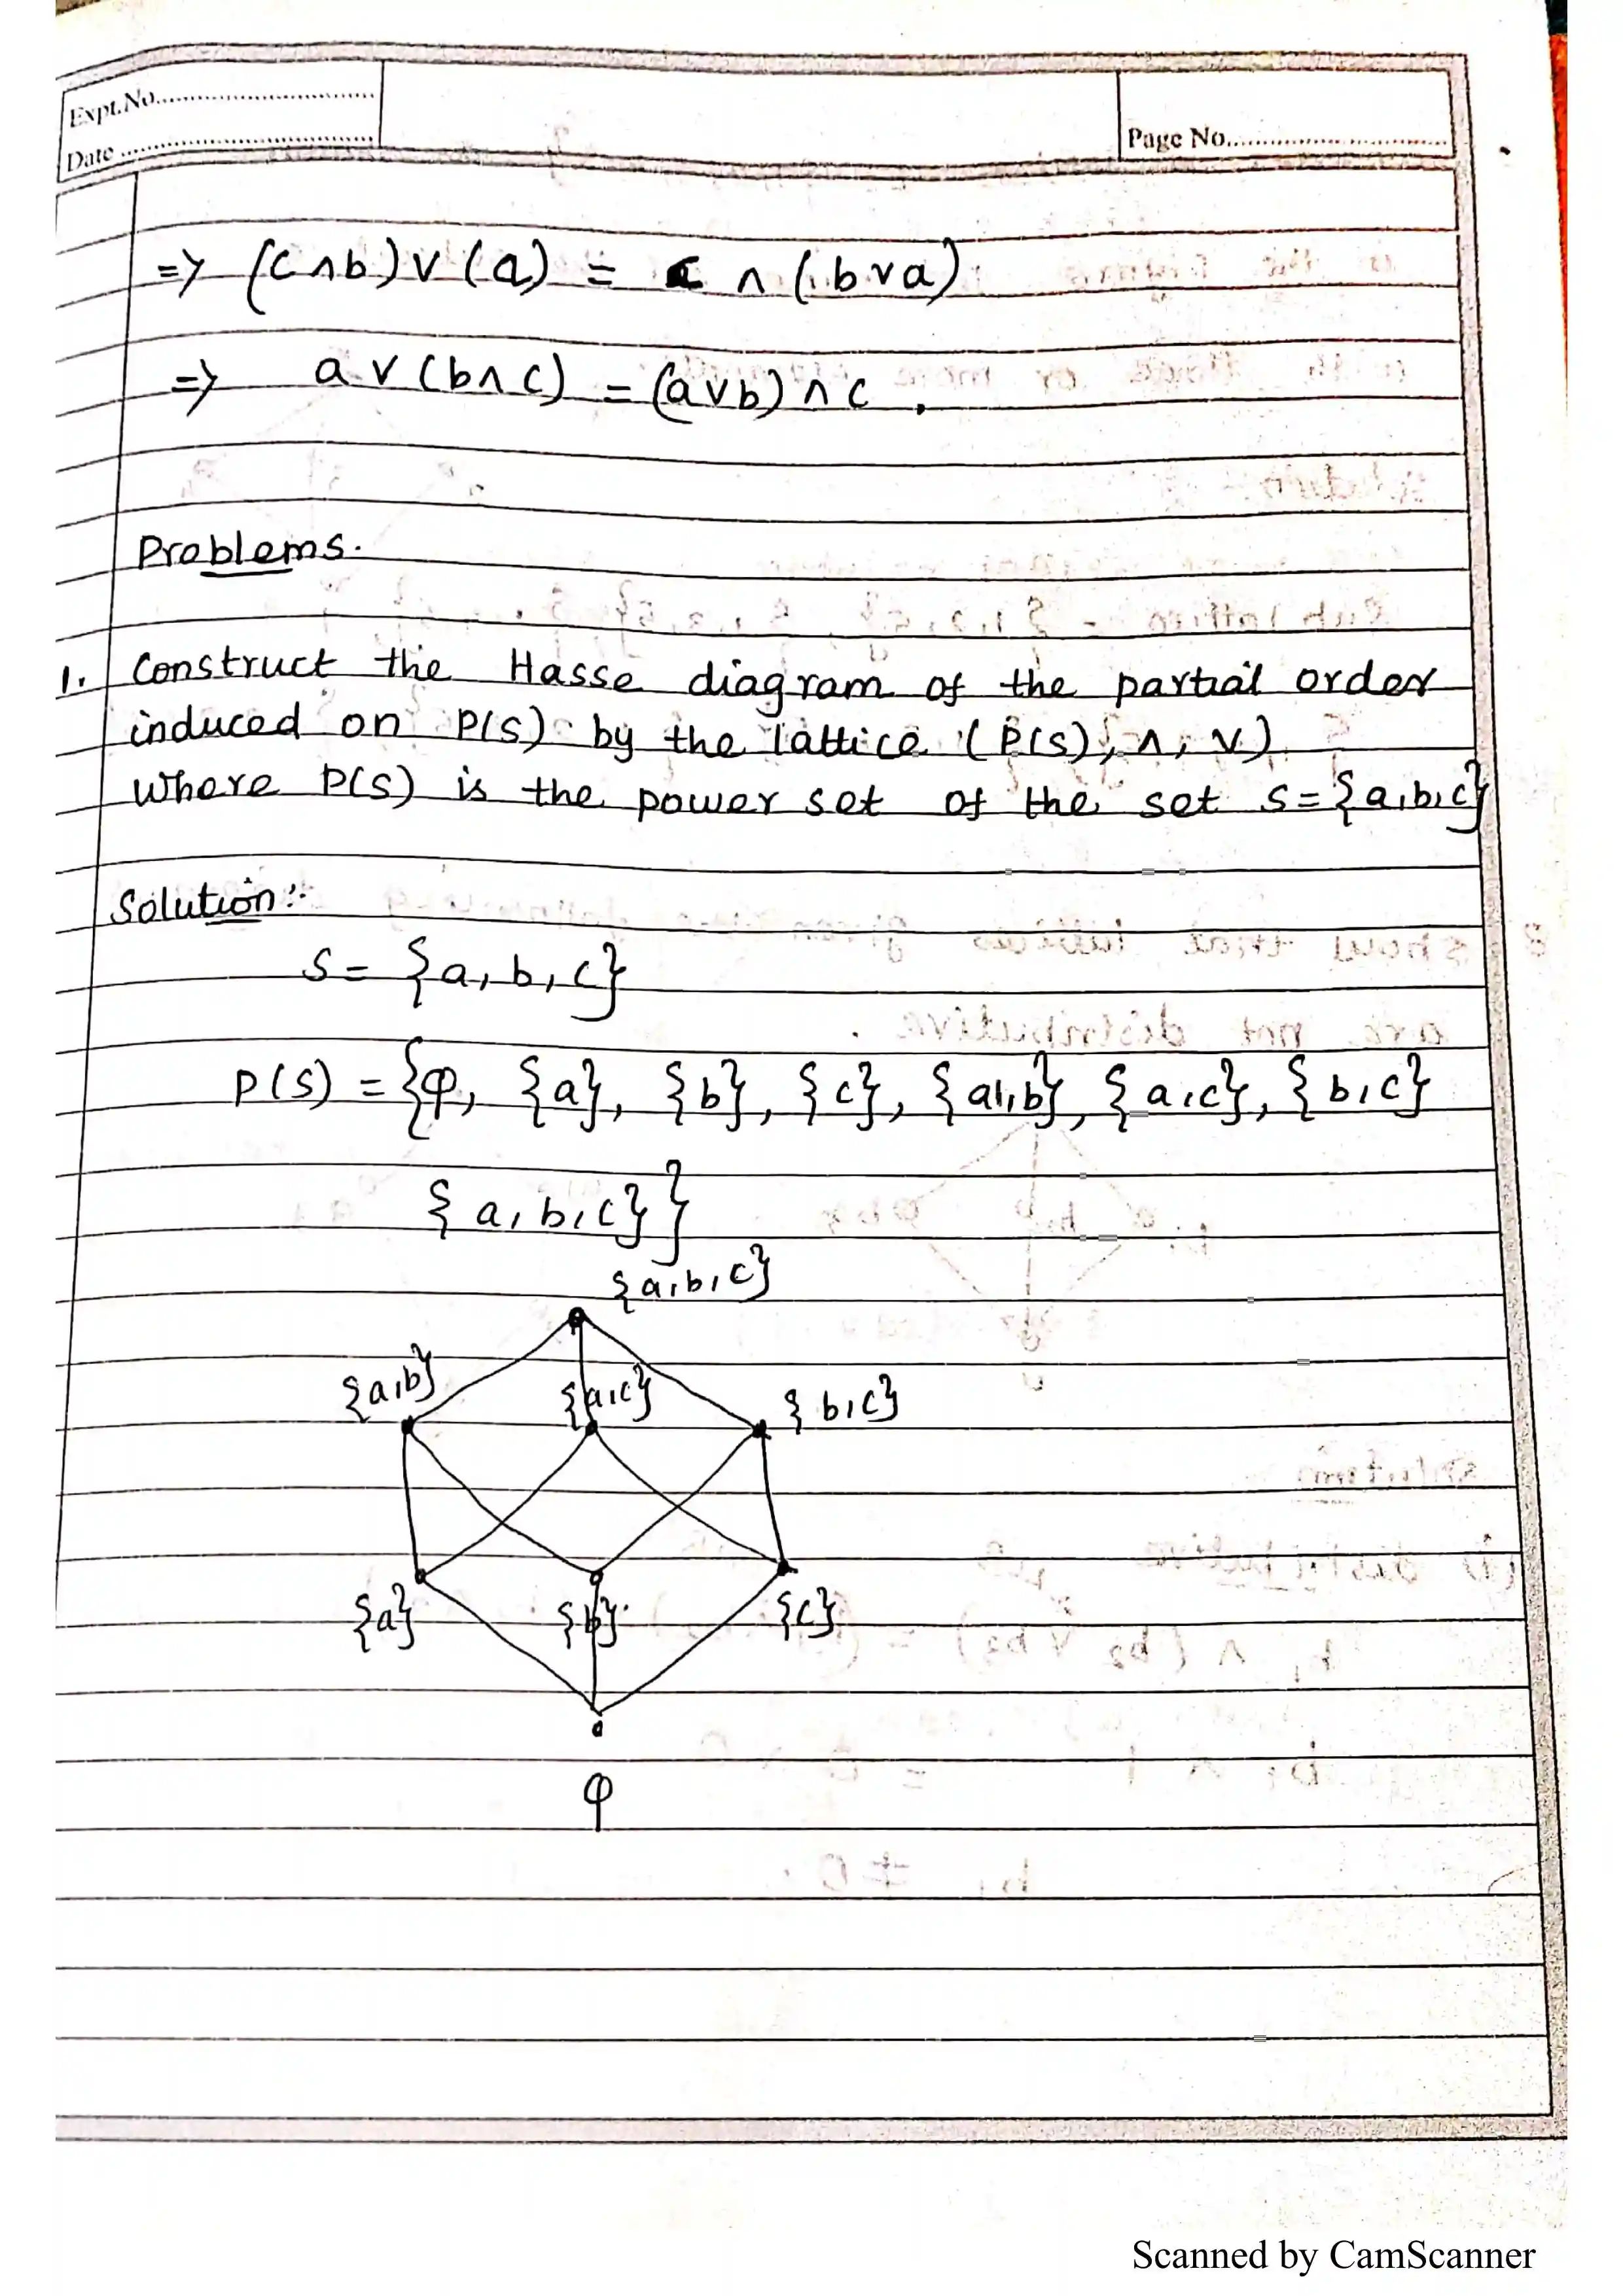 Expt.No.
Date
Page No.
=> (c ∧ b) ∨ (a) = c ∧ (b ∨ a)
=> a ∨ (b ∧ c) = (a ∨ b) ∧ c .
Problems.
1. Construct the Hasse diagram of the partial order
induced on P(S) by the lattice (P(S), ∧, ∨)
Where P(S) is the power set of the set S = {a, b, c}
Solution:-
S = {a, b, c}
P(S) = {φ, {a}, {b}, {c}, {a, b}, {a, c}, {b, c}
{a, b, c}}
{a, b, c}
{a, b} {a, c} {b, c}
{a} {b} {c}
φ
Scanned by CamScanner